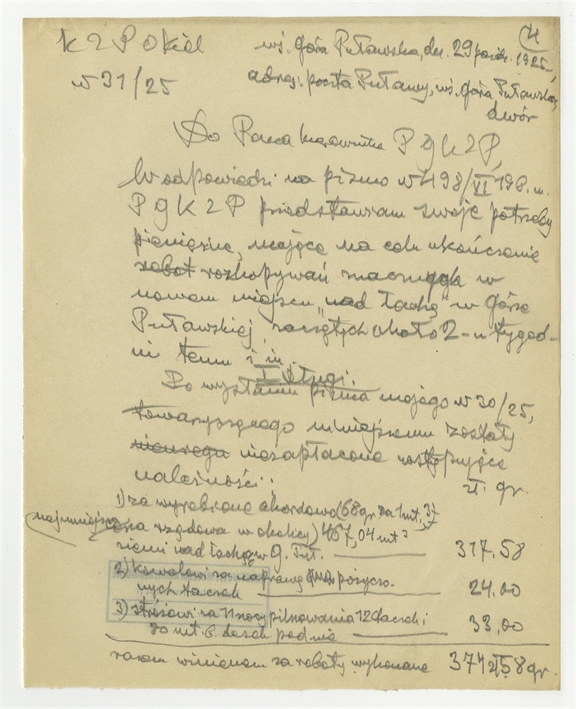 4
K Z P Okól wś. Góra Puławska, dn. 29 paźdz. 1925,
N 31/25 adres. poczta Puławy, wś. Góra Puławska,
dwór
Do Pana Kierownika P G K Z P,
W odpowiedzi na pismo N 498/VI
P G K Z P przedstawiam swoje potrzeby
pieniężne, mające na celu ukończenie
robót rozkopywań znacznych w
nowem miejscu "nad Łachą" w Górze
Puławskiej, zaczętych około 2-u tygod-
ni temu i in.
I Długi.
Po wysłaniu pisma mojego N 30/25,
towarzyszącego niniejszemu zostały
niezapłacone następujące
należności: zł. gr.
1) za wyrobione akordowo (68 gr. za 1 mt.
najmniejsza cena rządowa w okolicy) 467,04 mt³
ziemi nad Łachą w G. Puł. 317,58
2) kowalowi za naprawę pożyczo-
nych taczek 24,00
3) stróżowi za 11 nocy pilnowania 12 taczek i
desek podnie 33,00
razem winienem za roboty wykonane 374 zł 58 gr.